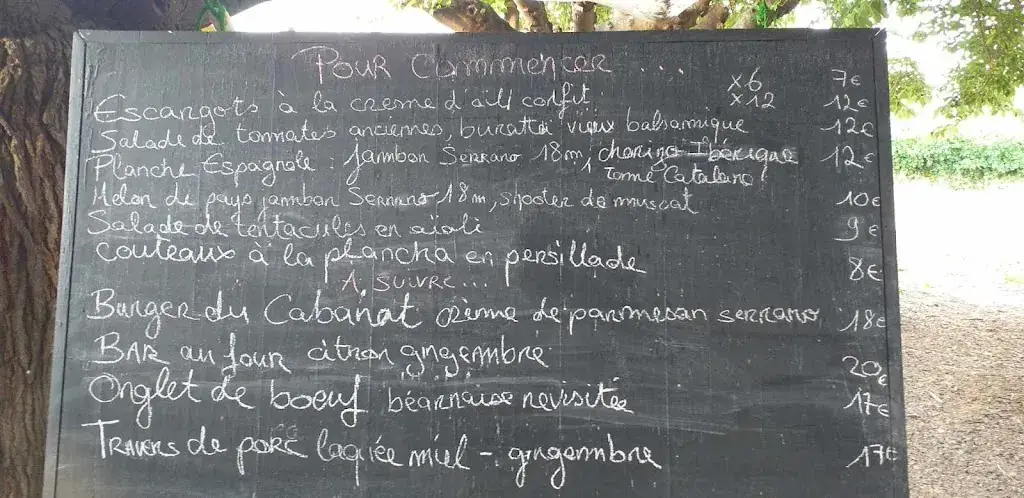 Pour Commencer ...
Escargots à la creme d'ail confit x6 7€
x12 12€
Salade de tommates anciennes, buratta vieux balsamique 12€
Planche Espagnole : jambon Serrano 18m, chorizo Ibérique 12€
Tome Catalane
Melon de pays jambon Serrano 18m, shooter de muscat 10€
Salade de tentacules en aïoli 9€
Couteaux à la plancha en persillade 8€
A suivre...
Burger du Cabanat crème de parmesan serrano 18€
Bar au four citron gingembre 20€
Onglet de boeuf béarnaise revisitée 17€
Travers de porc laquée miel - gingembre 17€